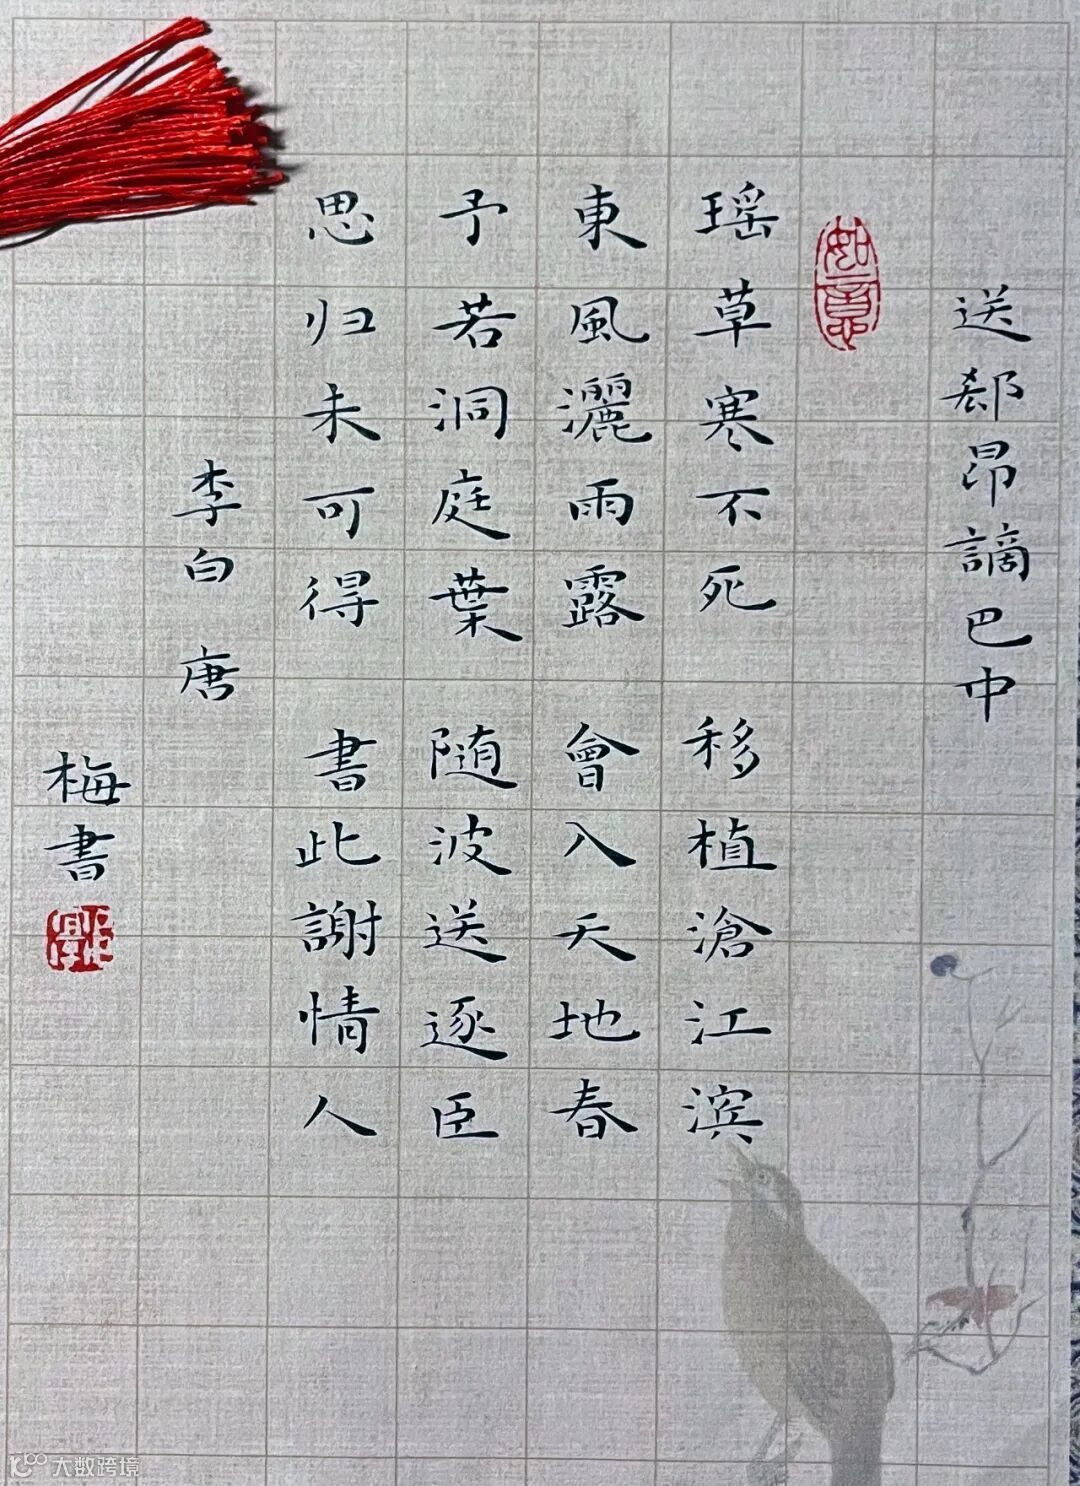 送郄昂謫巴中
如意
瑶草寒不死 移植滄江滨
東風灑雨露 會入天地春
予若洞庭葉 随波送逐臣
思归未可得 書此謝情人
李白 唐
梅書
大数跨境